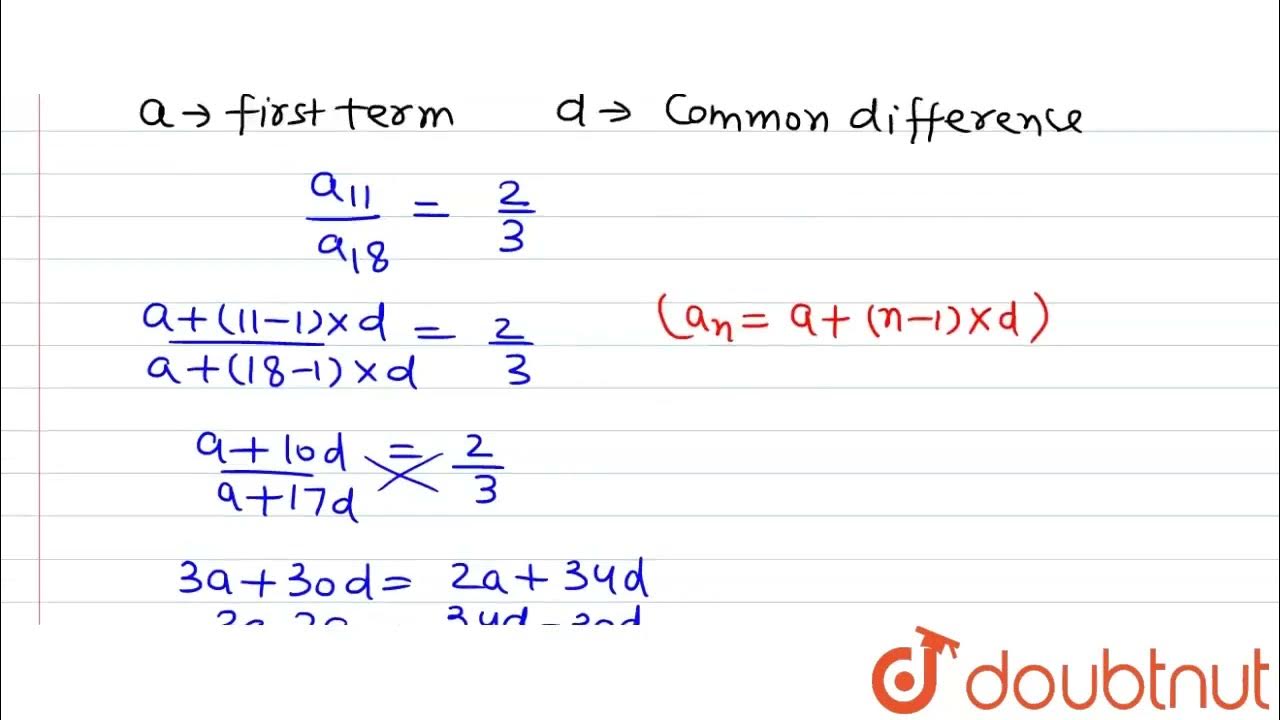 a → first term d → Common difference
a11/a18 = 2/3
a+(11-1)×d / a+(18-1)×d = 2/3 (an = a+(n-1)×d)
a+10d / a+17d = 2/3
3a+30d = 2a+34d
34d-30d
doubtnut